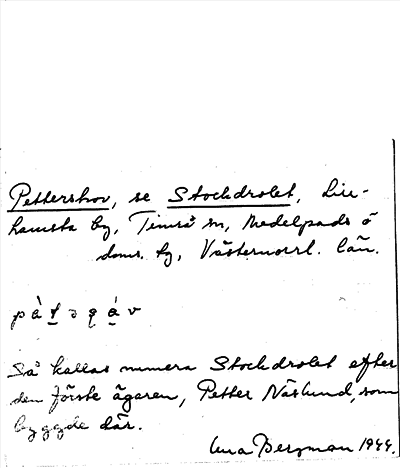 Pettershov, se Stockdrolet, Lise-
hamsta by, Timrå sn, Medelpads ö
doms. hg, Västernorrl. län.
Så kallas numera Stockdrolet efter
den förste ägaren, Petter Näslund, som
byggde där.
Bergman 1944.